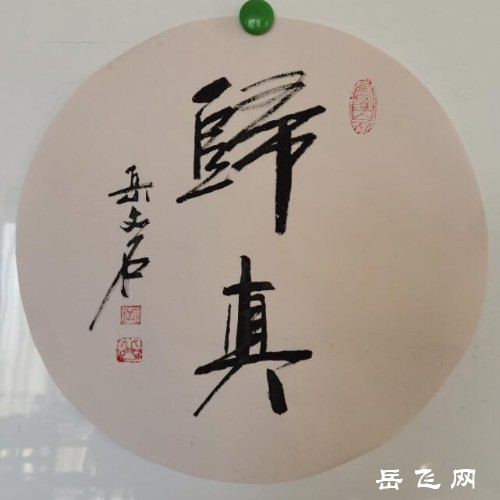 歸真
岳文石
岳飞网